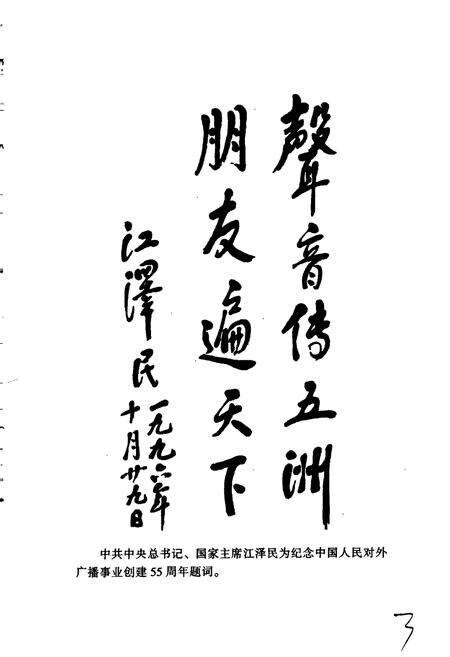 聲音傳五洲
朋友遍天下
江澤民
一九九六年
十月廿九日
中共中央总书记、国家主席江泽民为纪念中国人民对外
广播事业创建 55 周年题词。
3